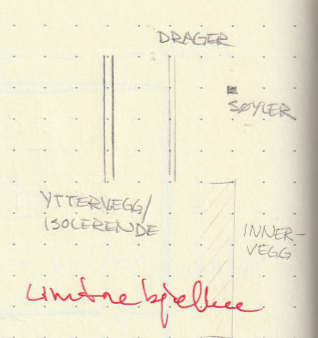 DRAGER
SØYLER
YTTERVEGG/
ISOLERENDE
INNER-
VEGG
Limtrebjelker